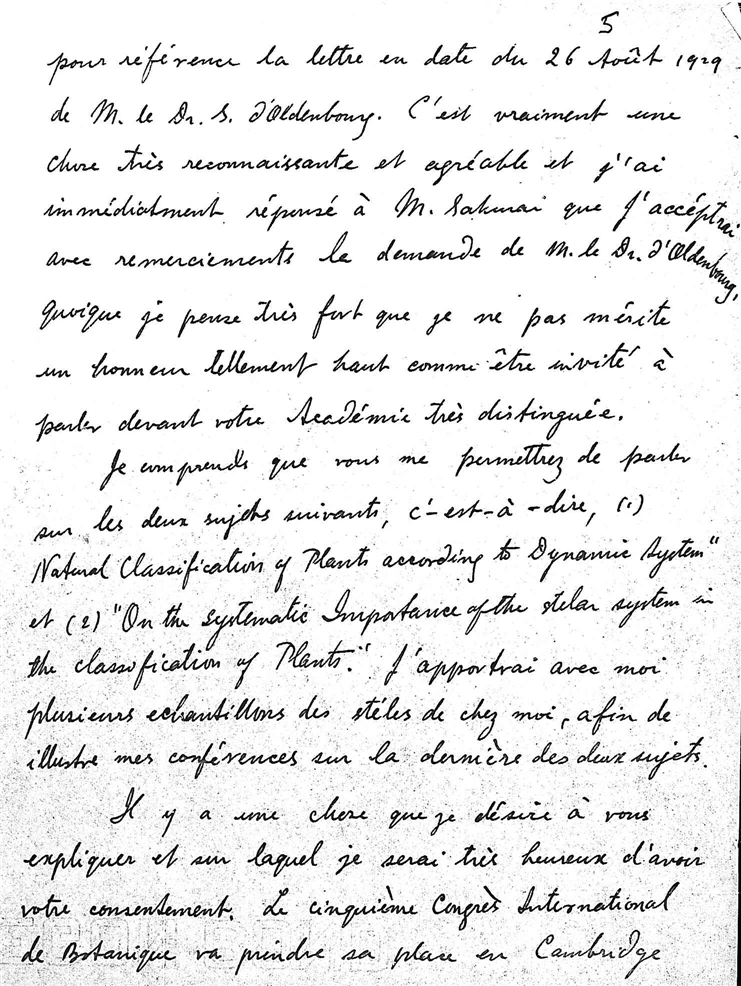 5
pour référence la lettre en date du 26 Août 1929
de M. le Dr. S. d'Oldenbourg. C'est vraiment une
chose très reconnaissante et agréable et j'ai
immédiatment réponsé à M. Sakurai que j'accéptrai
avec remerciements la demande de M. le Dr. d'Oldenbourg,
quoique je pense très fort que je ne pas mérite
un honneur tellement haut comme être invité à
parler devant votre Académie très distinguée.
Je comprends que vous me permettrez de parler
sur les deux sujets suivants, c'-est-à-dire, (1)
Natural Classification of Plants according to Dynamic System"
et (2) "On the Systematic Importance of the stelar system in
the classofication of Plants." J'apportrai avec moi
plusieurs echantillons des stéles de chez moi, afin de
illustre mes conférences sur la dernière des deux sujets.
Il y a une chose que je désire à vous
expliquer et sur laquel je serai très heureux d'avoir
votre consentement. Le cinquième Congrès International
de Botanique va prindre sa place en Cambridge